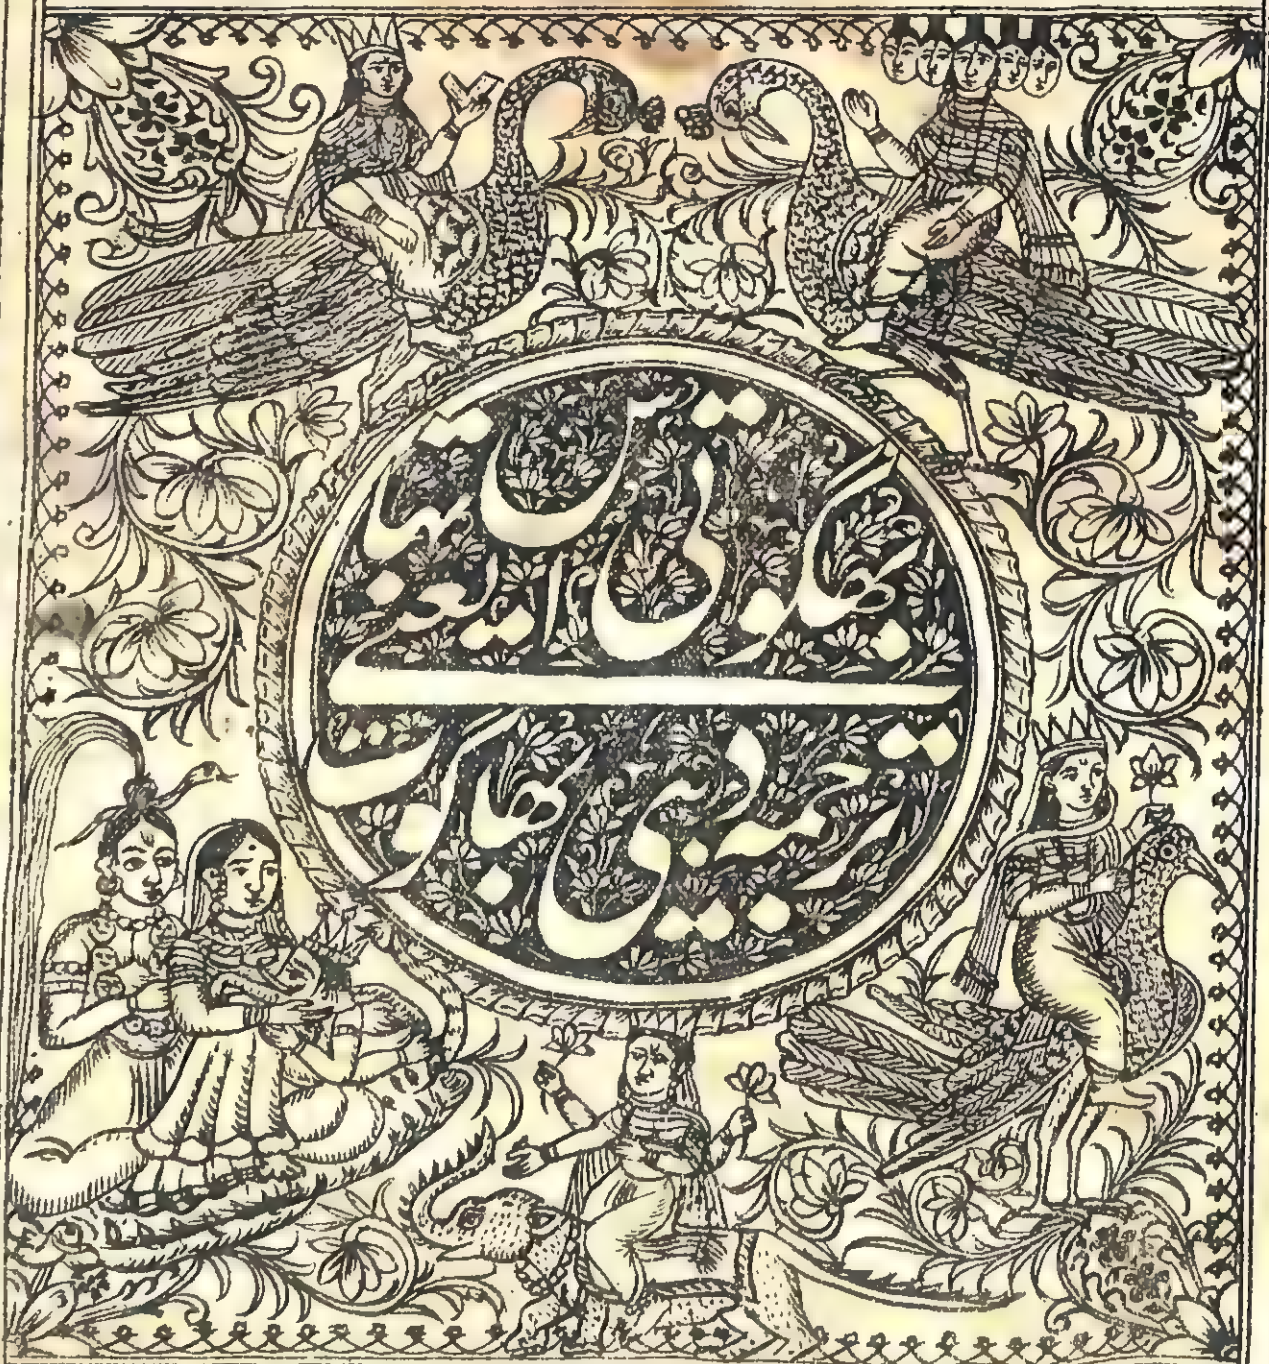 بھاگوتی اتہاس یعنے
ترجمہ دیبی بھاگوت